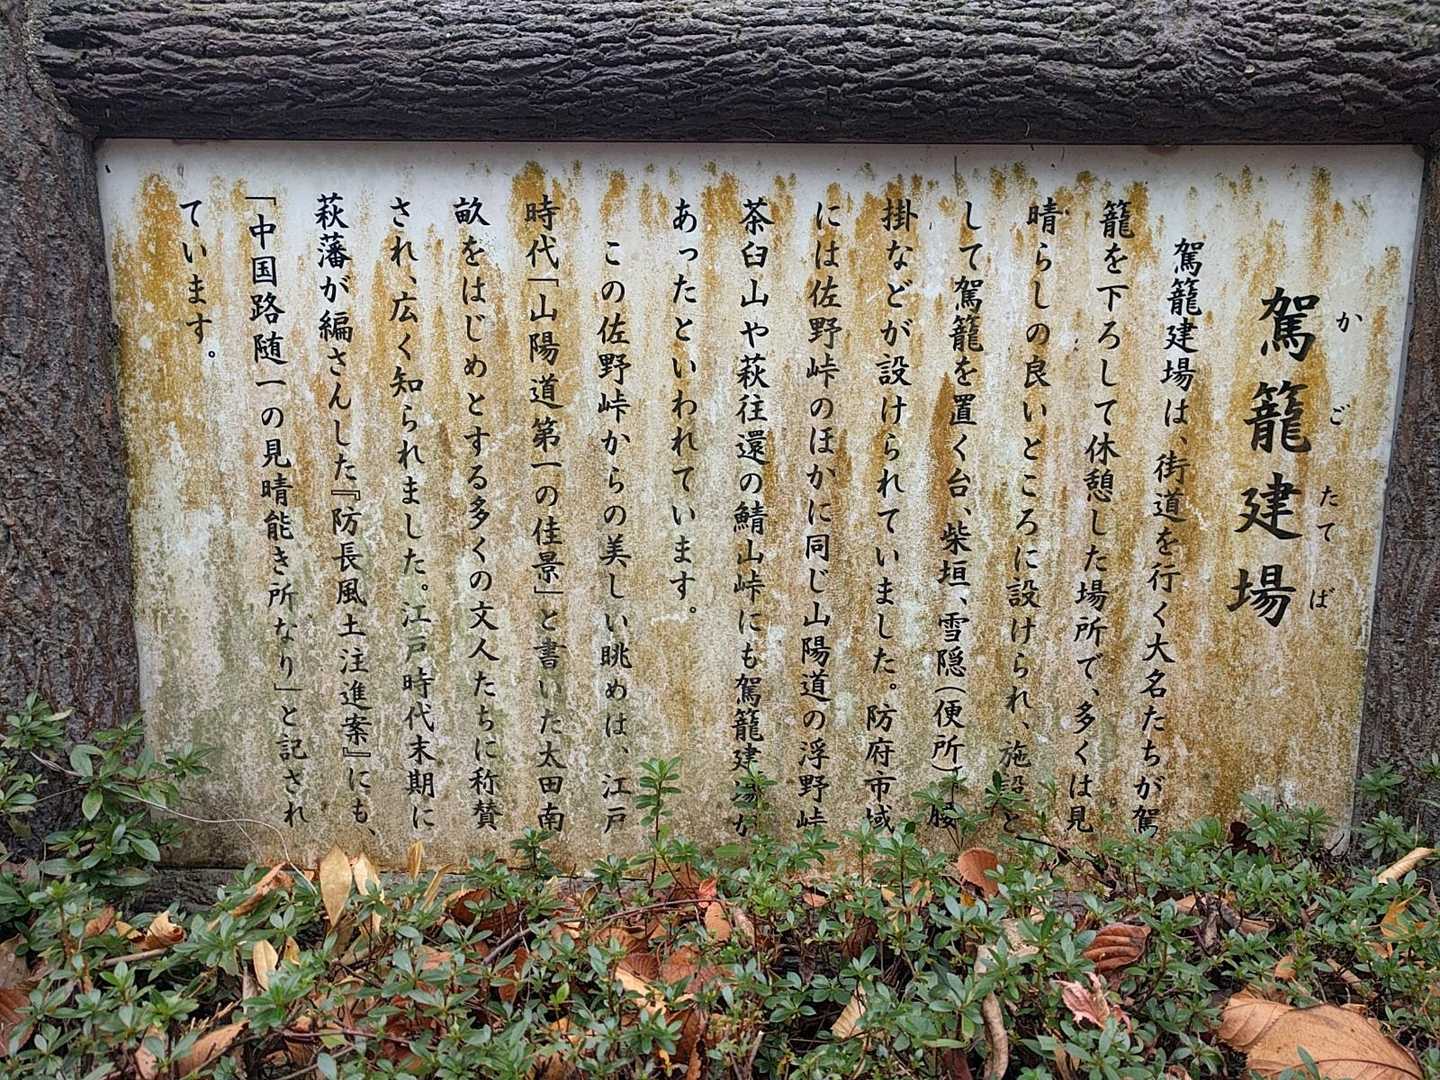 駕籠建場
かごたてば
駕籠建場は、街道を行く大名たちが駕
籠を下ろして休憩した場所で、多くは見
晴らしの良いところに設けられ、施設と
して駕籠を置く台、柴垣、雪隠(便所)、腰
掛などが設けられていました。防府市域
には佐野峠のほかに同じ山陽道の浮野峠
茶臼山や萩往還の鯖山峠にも駕籠建場が
あったといわれています。
この佐野峠からの美しい眺めは、江戸
時代「山陽道第一の佳景」と書いた太田南
畝をはじめとする多くの文人たちに称賛
され、広く知られました。江戸時代末期に
萩藩が編さんした『防長風土注進案』にも、
「中国路随一の見晴能き所なり」と記され
ています。